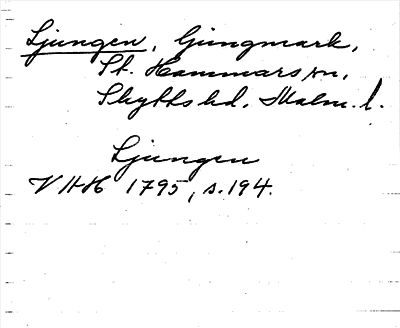 Ljungen, Gungmark,
St. Hammars sn,
Skytts hd, Malm. l.
Ljungen
VHH 1795, s. 194.